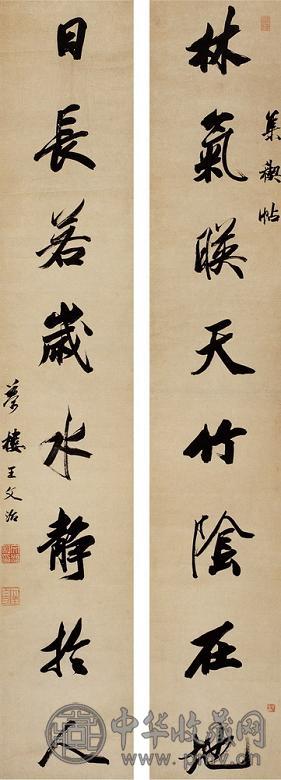 集禊帖
林氣暎天竹陰在地
日長若歲水靜於人
夢樓王文治
中华收藏网